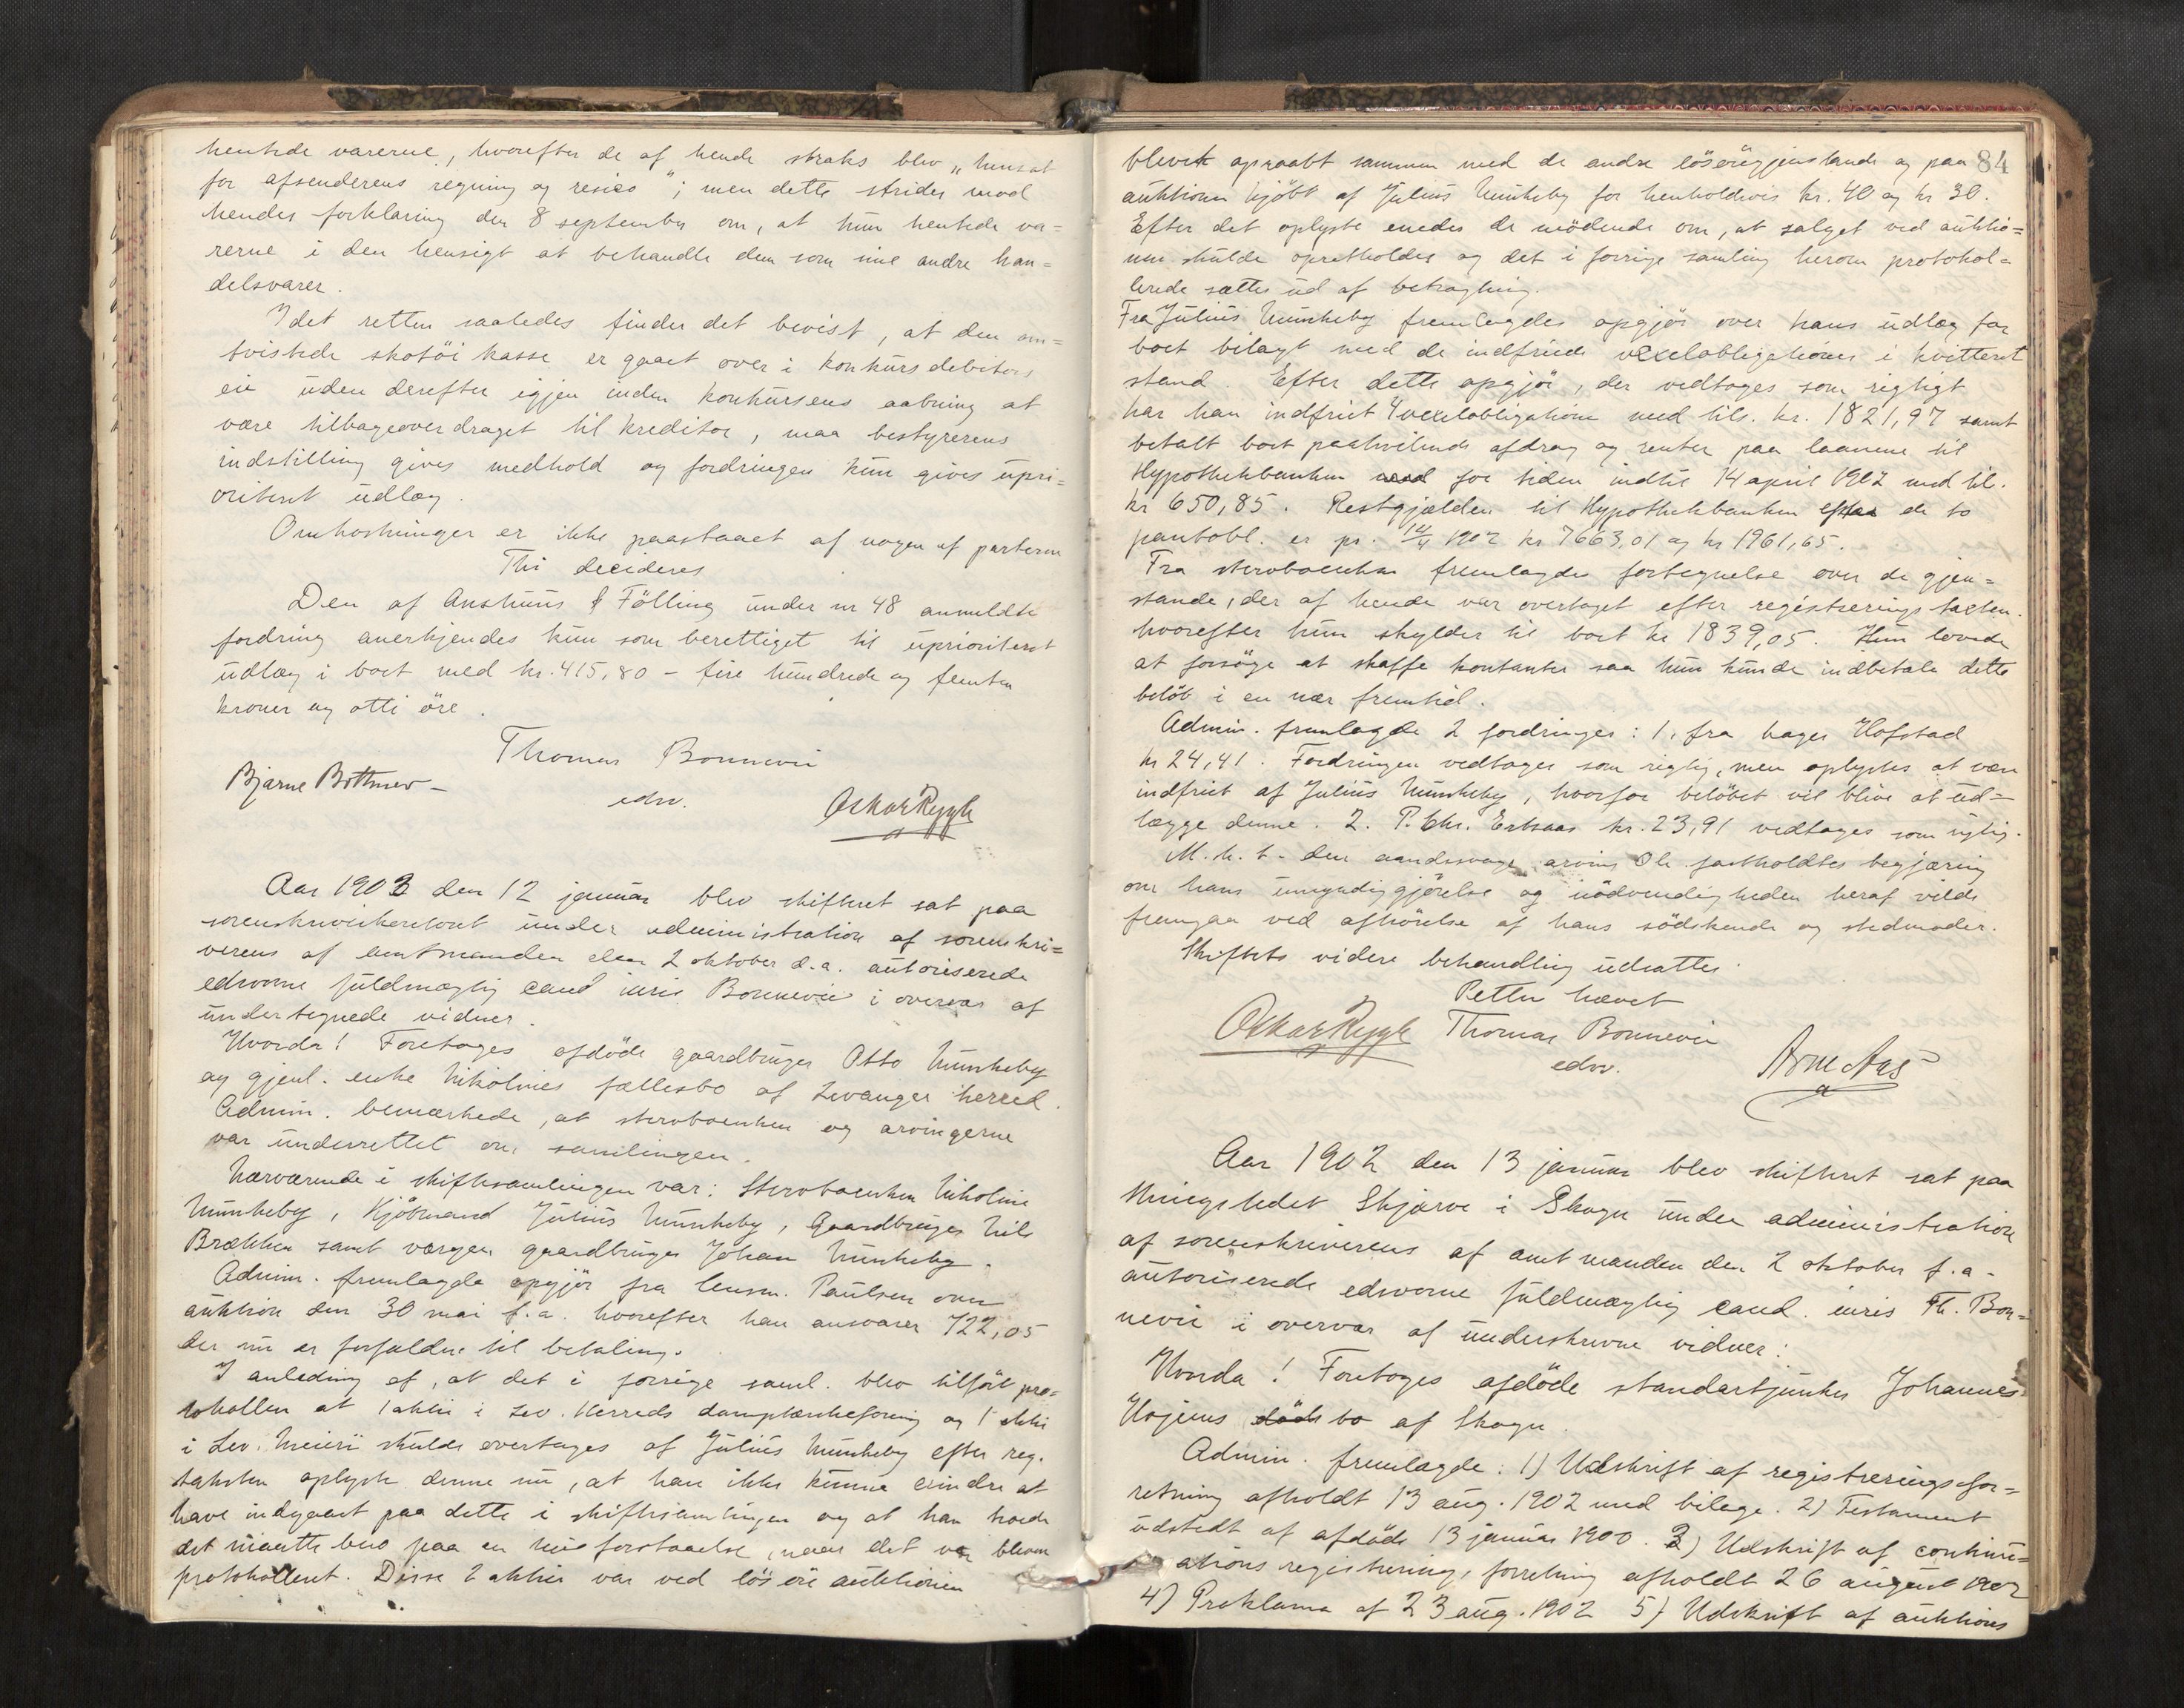 hentede varerne, hvorefter de af hende straks blev „hensat
for afsenderens regning og resico"; men dette strider mod
hendes forklaring den 8 september om, at hun hentede va=
rerne i den hensigt at behandle dem som sine andre han=
delsvarer.
Idet retten saaledes finder det bevist, at den om=
tvistede skotöi kasse er gaaet over i konkursdebitors
eie uden derefter igjen inden konkursens aabning at
være tilbageoverdraget til kreditor, maa bestyrerens
indstilling gives medhold og fordringen kun gives upri=
oriteret udlæg.
Omkostninger er ikke paastaaet af nogen af parterne
Thi decideres
Den af Anshuus & Fölling under nr 48 anmeldte
fordring anerkjendes kun som berettiget til uprioriteret
udlæg i boet med kr. 415,80 – fire hundrede og femten
kroner og otti öre.
Thomas Bonnevie
Bjarne Bothner
edsv.
Oskar Rygh
Aar 1903 den 12 januar blev skifteret sat paa
sorenskriverkontoret under administration af sorenskri=
verens af amtmanden den 2 oktober d.a. autoriserede
edsvorne fuldmægtig cand juris Bonnevie i overvær af
undertegnede vidner.
Hvorda! Foretoges afdöde gaardbruger Otto Munkeby
og gjenl. enke Nikolines fællesbo af Levanger herred.
Admin. bemærkede, at stervboenken og arvingerne
var underrettet om samlingen.
Nærværende i skiftesamlingen var: Stervboenken Nikoline
Munkeby, Kjöbmand Julius Munkeby, Gaardbruger Nils
Brækken samt værgen gaardbruger Johan Munkeby.
Admin. fremlagde opgjör fra lensm. Paulsen over
auktion den 30 mai f.a. hvorefter han ansvarer 722,05
der nu er forfaldne til betaling.
I anledning af, at det i forrige saml. blev tilfört pro=
tokollen at 1 aktie i Lev. Herreds damptærskeforening og 1 aktie
i Lev. Meieri skulde overtages af Julius Munkeby efter reg.
taksten oplyste denne nu, at han ikke kunne erindre at
have indgaaet paa dette i skiftesamlingen og at han troede
det maatte bero paa en misforstaaelse, naar det var bleven
protokolleret. Disse 2 aktier var ved lösöre auktionen
84
blevet opraabt sammen med de andre lösöregjenstande og paa
auktionen kjöbt af Julius Munkeby for henholdsvis kr. 40 og kr 30.
Efter det oplyste enedes de mödende om, at salget ved auktio=
nen skulde opretholdes og det i forrige samling herom protokol=
lerede sættes ud af betragtning.
Fra Julius Munkeby fremlagdes opgjör over hans udlæg for
boet bilagt med de indfriede vexelobligationer i kvitteret
stand. Efter dette opgjör, der vedtoges som rigtigt
har han indfriet 4 vexelobligationer med tils. kr. 1821,97 samt
betalt boet paahvilende afdrag og renter paa laanene til
Hypothekbanken for tiden indtil 14 april 1902 med til.
kr 650,85. Restgjælden til Hypothekbanken efter de to
pantobl. er pr. 14/4 1902 kr 7663,01 og kr 1961,65.
Fra stervboenken fremlagdes fortegnelse over de gjen=
stande, der af hende var overtaget efter registreringstaxten.
hvorefter hun skylder til boet kr 1839,05. Hun lovede
at forsöge at skaffe kontanter saa hun kunde indbetale dette
belöb i en nær fremtid.
Admin. fremlagde 2 fordringer: 1, fra bager Hofstad
kr 24,41. Fordringen vedtoges som rigtig, men oplystes at være
indfriet af Julius Munkeby, hvorfor belöbet vil blive at ud=
lægge denne. 2. P. Chr. Ertsaas kr. 23,91 vedtoges som rigtig.
M. h. t. den aandssvage arving Ole fastholdtes begjæring
om hans umyndiggjörelse og nödvendigheden heraf vilde
fremgaa ved afhörelse af hans södskende og stedmoder.
Skiftets videre behandling udsattes.
Retten hævet
Oskar Rygh Thomas Bonnevie
edsv.
Arne Aas
Aar 1902 den 13 januar blev skifteret sat paa
thingstedet Skjerve i Skogn under administration
af sorenskriverens af amtmanden den 2 oktober f.a.
autoriserede edsvorne fuldmægtig cand. juris Th. Bon=
nevie i overvær af underskrevne vidner:
Hvorda! Foretoges afdöde standartjunker Johannes
Hojems dödsbo af Skogn.
Admin. fremlagde: 1) Udskrift af registreringsfor=
retning afholdt 13 aug. 1902 med bilage. 2) Testament
udstedt af afdöde 13 januar 1900. 3) Udskrift af continu=
ations registrerings forretning afholdt 26 august 1902
4) Proklama af 23 aug. 1902 5) Udskrift af auktions